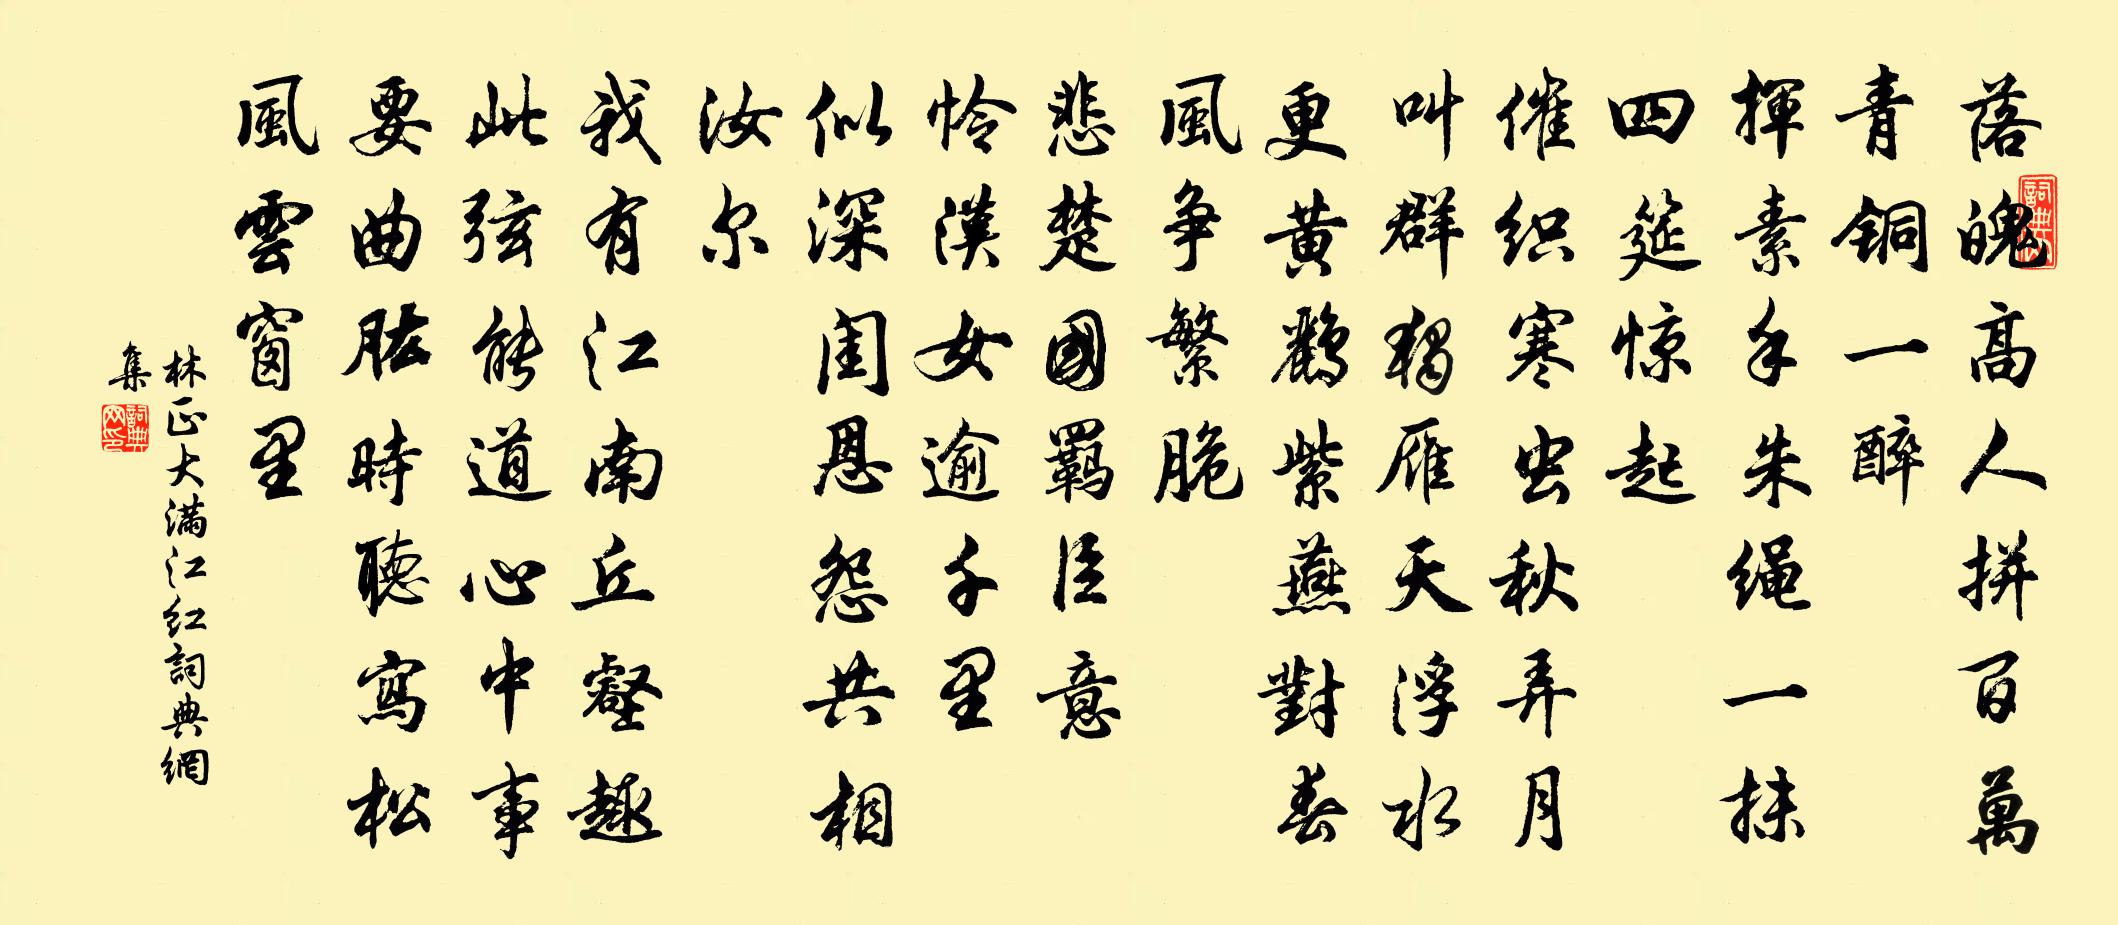 落魄高人拼百萬
青铜一醉
揮素手朱绳一抹
四筵惊起
催织寒虫秋弄月
叫群独雁天浮水
更黄鸝紫燕對春
風争繁脆
悲楚國羁臣意
怜漢女逾千里
似深闺恩怨共相
汝尔
我有江南丘壑趣
此弦能道心中事
要曲肱時聴寫松
風雲窗里
林正大满江红詞典網
集
詞典網
詞典網印